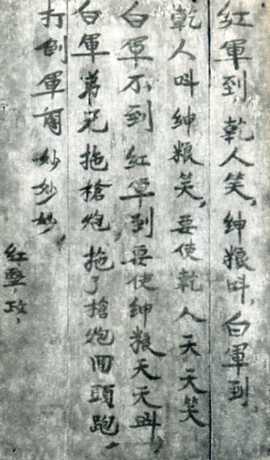 紅軍到,乾人笑,紳粮叫,白軍到,
乾人叫紳粮笑,要使乾人天天笑
白軍不到紅軍到要使紳粮天天叫,
白軍弟兄拖槍炮拖了槍炮回頭跑,
打倒軍閥妙妙妙,
紅 政,